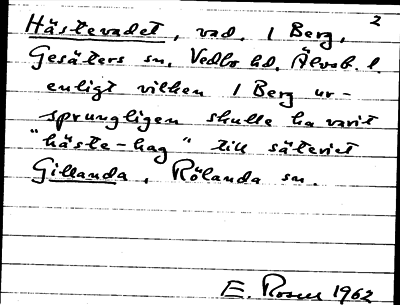 2
Hästevadet, vad. 1 Berg,
Gesäters sn. Vedbo hd. Älvsb. l.
enligt vilken 1 Berg ur-
sprungligen skulle ha varit
"häste-hag" till säteriet
Gillanda, Rölanda sn.
E. Rosen 1962